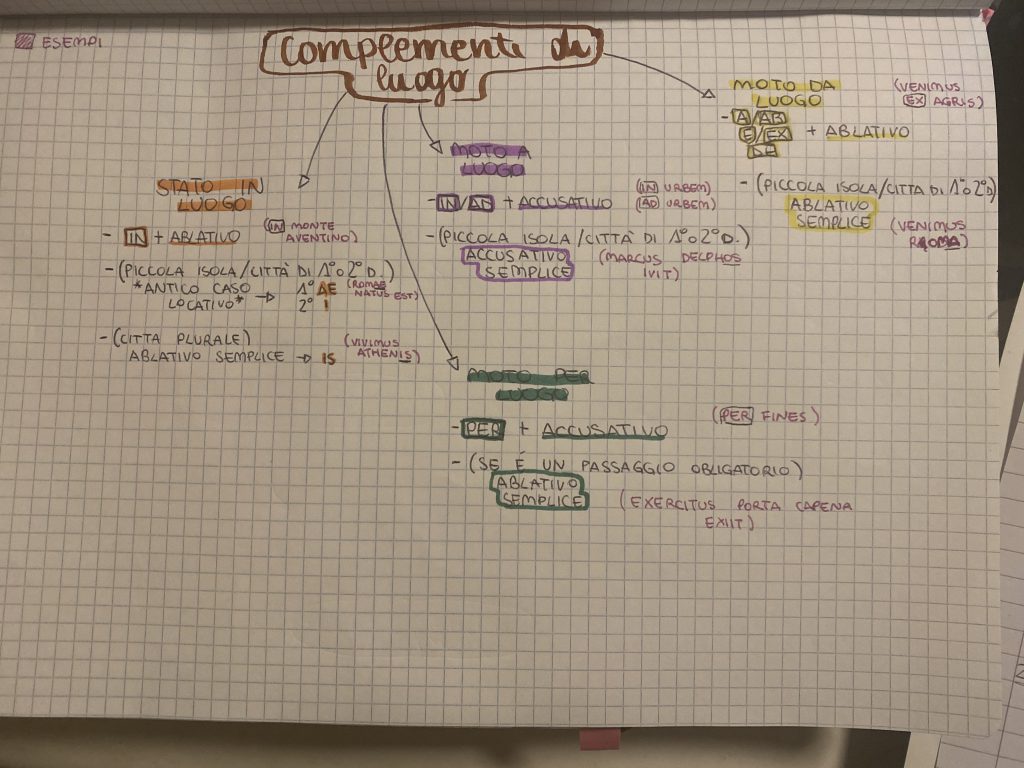 ESEMPI
Complementi di
luogo
MOTO DA
LUOGO
(VENIMUS
EX AGRIS)
- A/AB
E/EX + ABLATIVO
DE
- (PICCOLA ISOLA/CITTÀ DI 1° o 2° D)
ABLATIVO
SEMPLICE
(VENIMUS
ROMA)
MOTO A
LUOGO
- IN/AD + ACCUSATIVO
(IN URBEM)
(AD URBEM)
- (PICCOLA ISOLA/CITTÀ DI 1° o 2° D.)
ACCUSATIVO
SEMPLICE
(MARCUS DELPHOS
IVIT)
STATO IN
LUOGO
- IN + ABLATIVO
(IN MONTE
AVENTINO)
- (PICCOLA ISOLA/CITTÀ DI 1° o 2° D.)
*ANTICO CASO
LOCATIVO* → 1° AE
2° I
(ROMAE
NATUS EST)
- (CITTA PLURALE)
ABLATIVO SEMPLICE → IS
(VIVIMUS
ATHENIS)
MOTO PER
LUOGO
- PER + ACCUSATIVO
(PER FINES)
- (SE É UN PASSAGGIO OBLIGATORIO)
ABLATIVO
SEMPLICE
(EXERCITUS PORTA CAPENA
EXIIT)